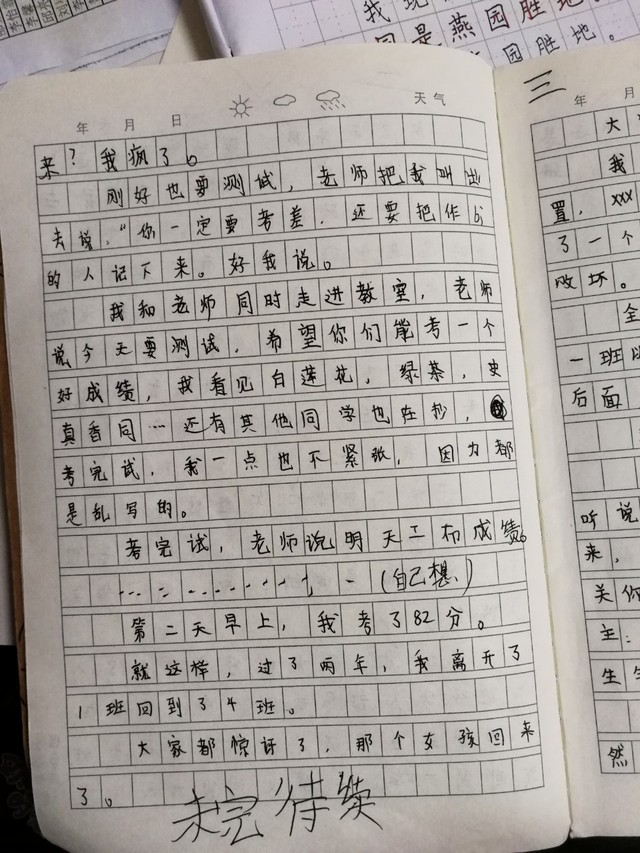 我现
是燕园胜地
园胜地。
年 月 日 天气
来？我疯了。
刚好也要测试，老师把我叫出
去说，“你一定要考差．还要把作弓
的人记下来。好我说。
我和老师同时走进教室，老师
说今天要测试．希望你们能考一个
好成绩，我看见白莲花，绿茶，史
真香同…还有其他同学也在抄，
考完试，我一点也不紧张，因为都
是乱写的。
考完试，老师说明天工布成绩。
（自己想、）
第二天早上，我考了82分。
就这样，过了两年，我离开了
1班回到了4班。
大家都惊讶了，那个女孩回来
了。
未完待续
三
年 月
大
我
置，xxx
了一个
败坏。
全
一班以
后面
听说
来，
关你
主：
生
然